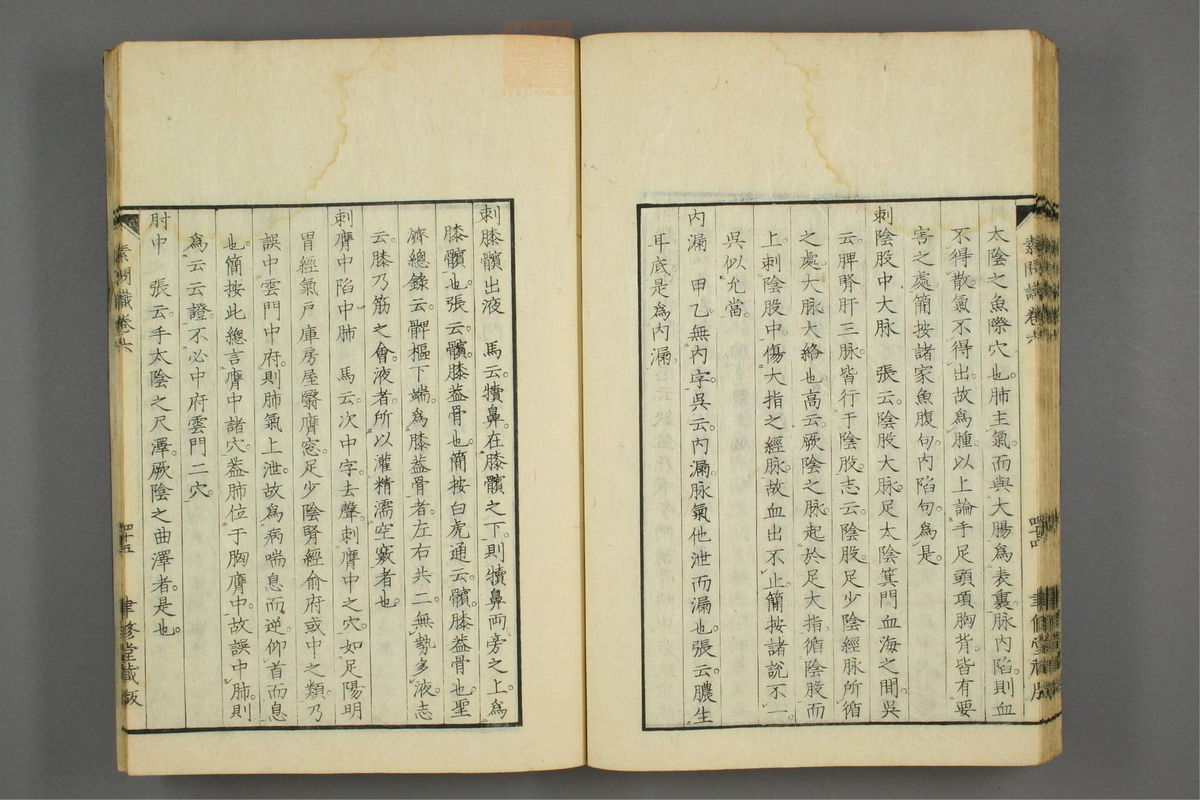 太陰之魚際穴也。肺主氣。而與大腸爲表裏。脉內陷。則血
不得散。氣不得出。故爲腫。以上論手足頭項胸背。皆有要
害之處。簡按諸家魚腹句。內陷句。爲是。
刺陰股中大脉　張云。陰股大脉。足太陰箕門血海之間。吳
云。脾腎肝三脉。皆行于陰股。志云。陰股。足少陰經脉所循
之處。大脉。大絡也。高云。厥陰之脉。起於足大指。循陰股而
上。刺陰股中。傷大指之經脉。故血出不止。簡按諸說不一。
吳似允當。
內漏　甲乙無內字。吳云。內漏。脉氣他泄而漏也。張云。膿生
耳底。是爲內漏。
素問識卷六
四十四
聿修堂藏版
刺膝髕出液　馬云。犢鼻。在膝髕之下。則犢鼻兩旁之上爲
膝髕也。張云。髕。膝蓋骨也。簡按白虎通云。髕。膝蓋骨也。聖
濟總錄云。髀樞下端。爲膝蓋骨者。左右共二。無勢多液。志
云。膝乃筋之會。液者。所以灌精濡空竅者也
刺膺中陷中肺　馬云。次中字。去聲。刺膺中之穴。如足陽明
胃經氣戶庫房屋翳膺窓。足少陰腎經俞府或中之類。乃
誤中雲門中府。則肺氣上泄。故爲病喘息而逆。仰首而息
也。簡按此總言膺中諸穴。蓋肺位于胸膺中。故誤中肺。則
爲云云證。不必中府雲門二穴。
肘中　張云。手太陰之尺澤。厥陰之曲澤者。是也。
素問識卷六
四十五
聿修堂藏版